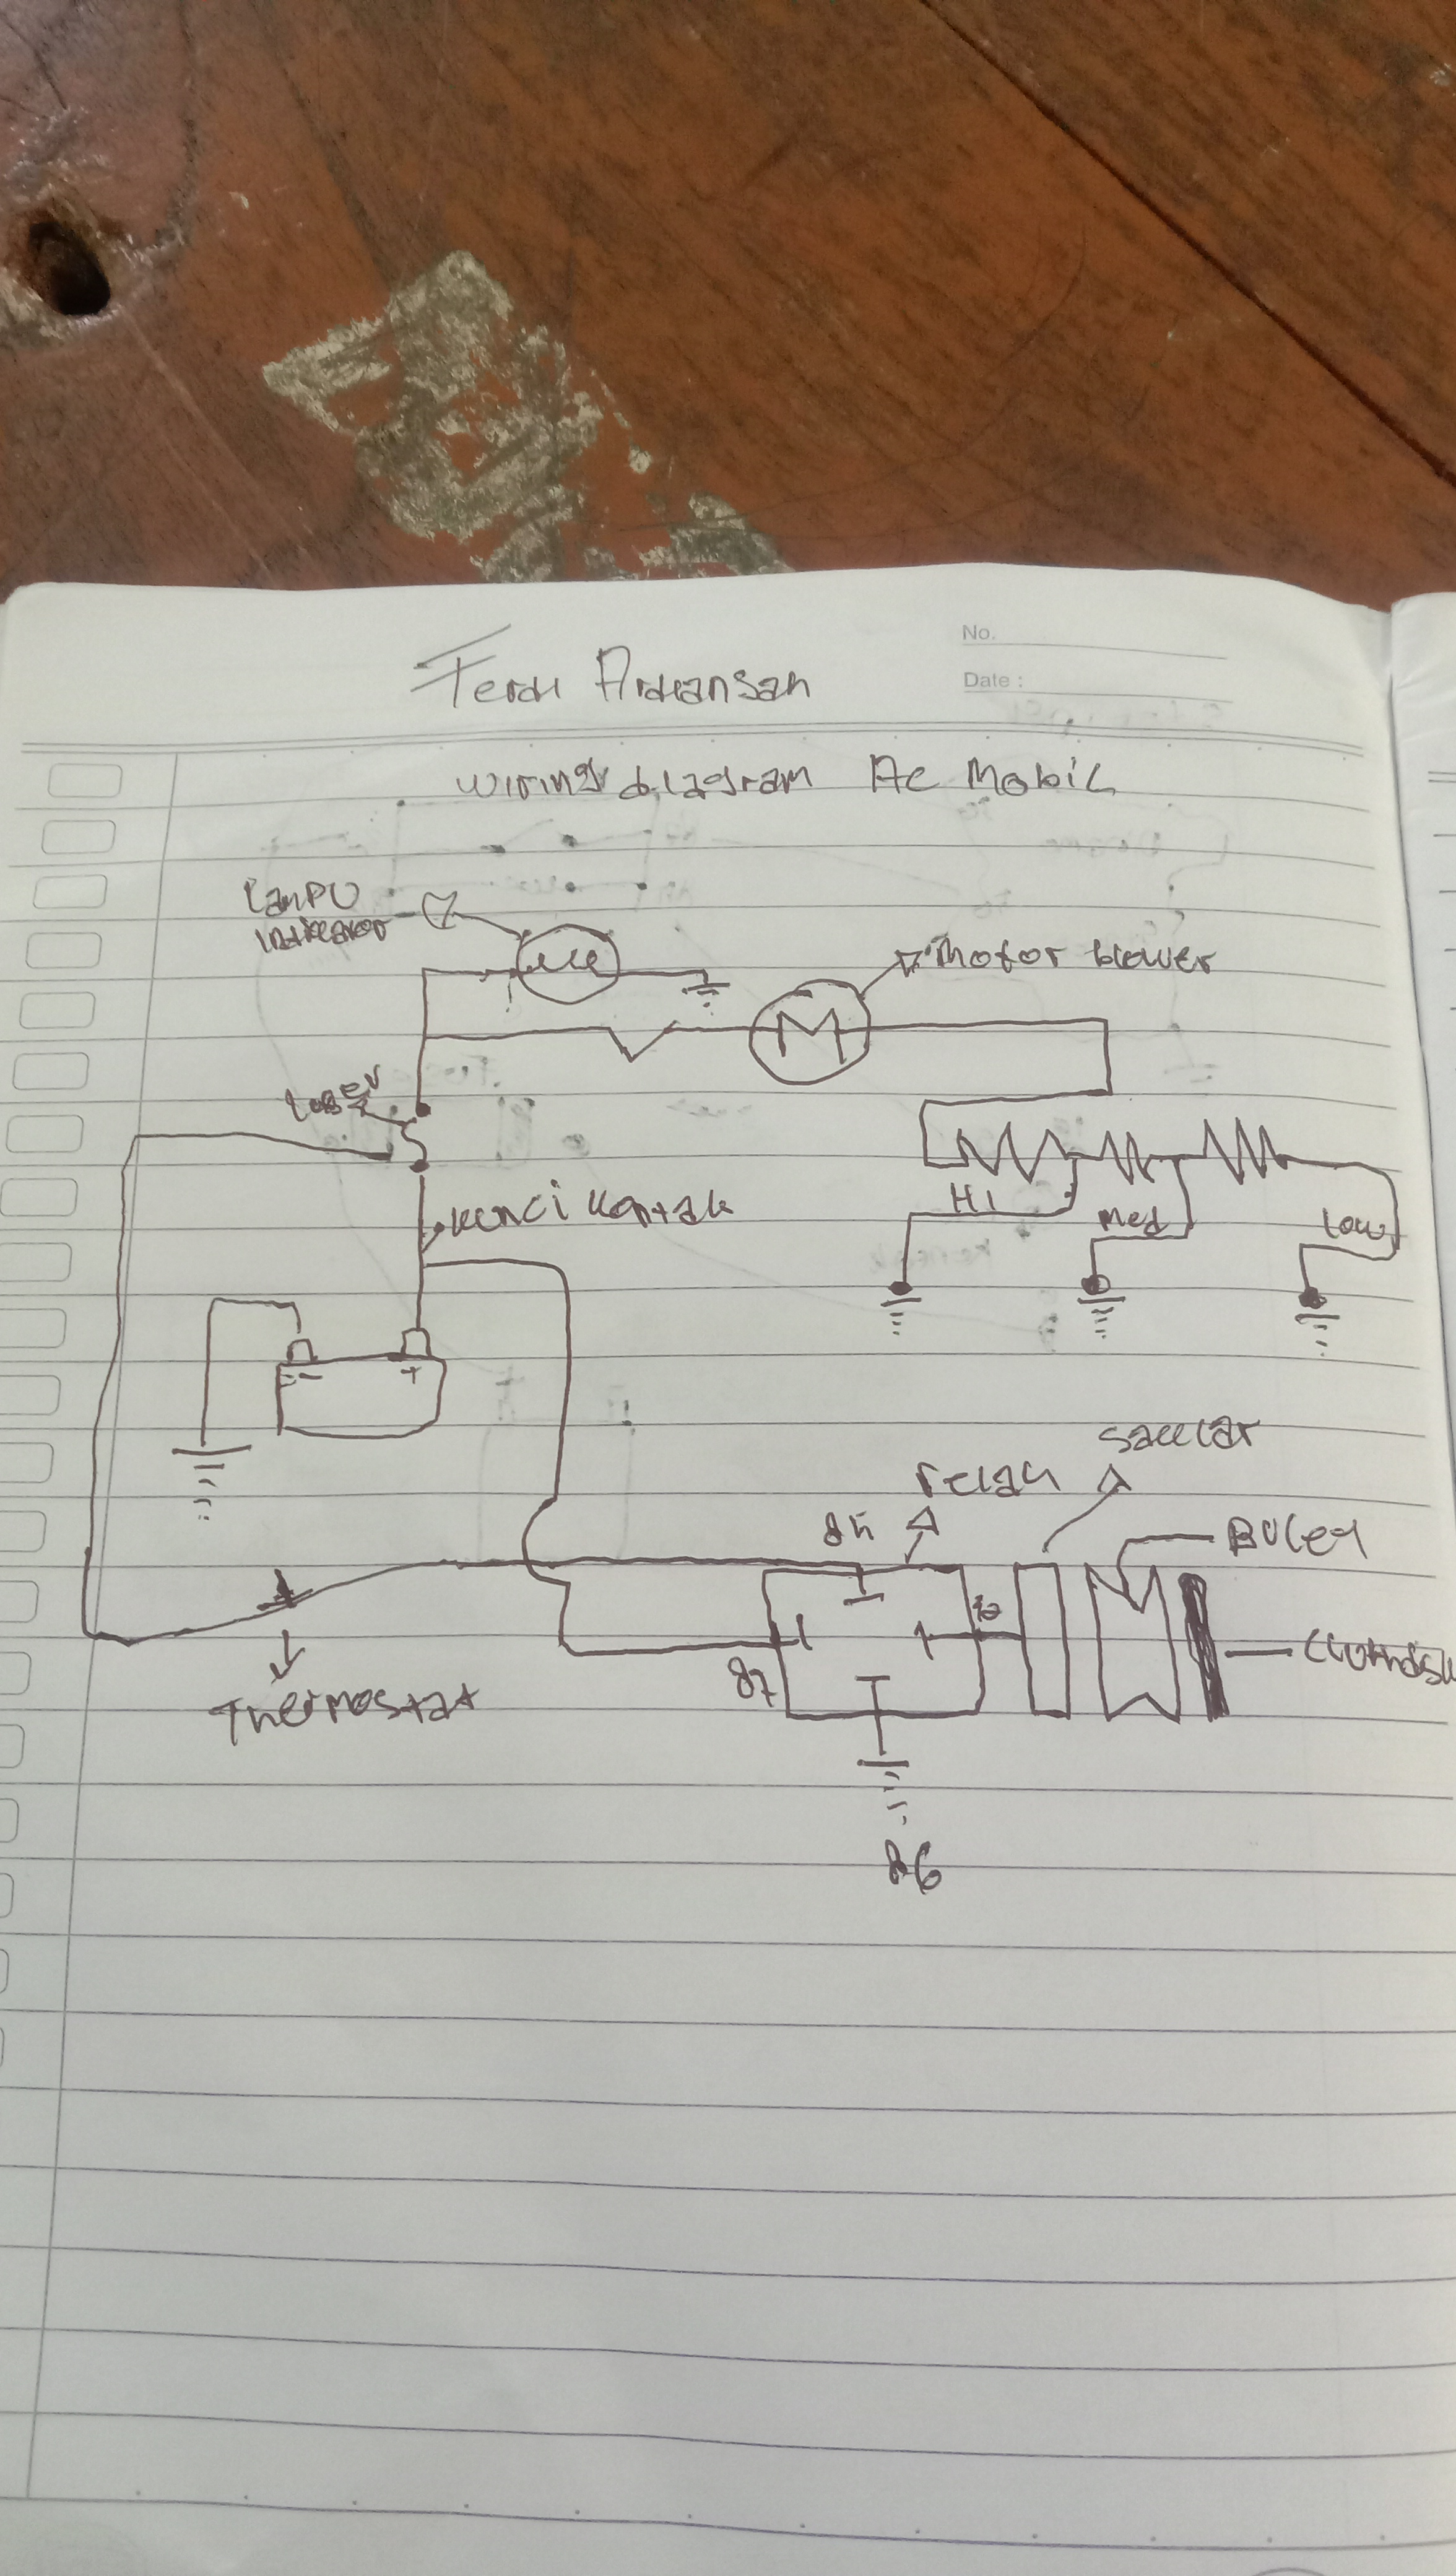 No.
Date :
Ferdi Ardiansah
Wiring diagram AC Mobil
Lampu
indikator
Motor blower
Kunci Kontak
HI
Med
Low
- +
Saklar
relay
85
Buley
30
87
Thermostat
86